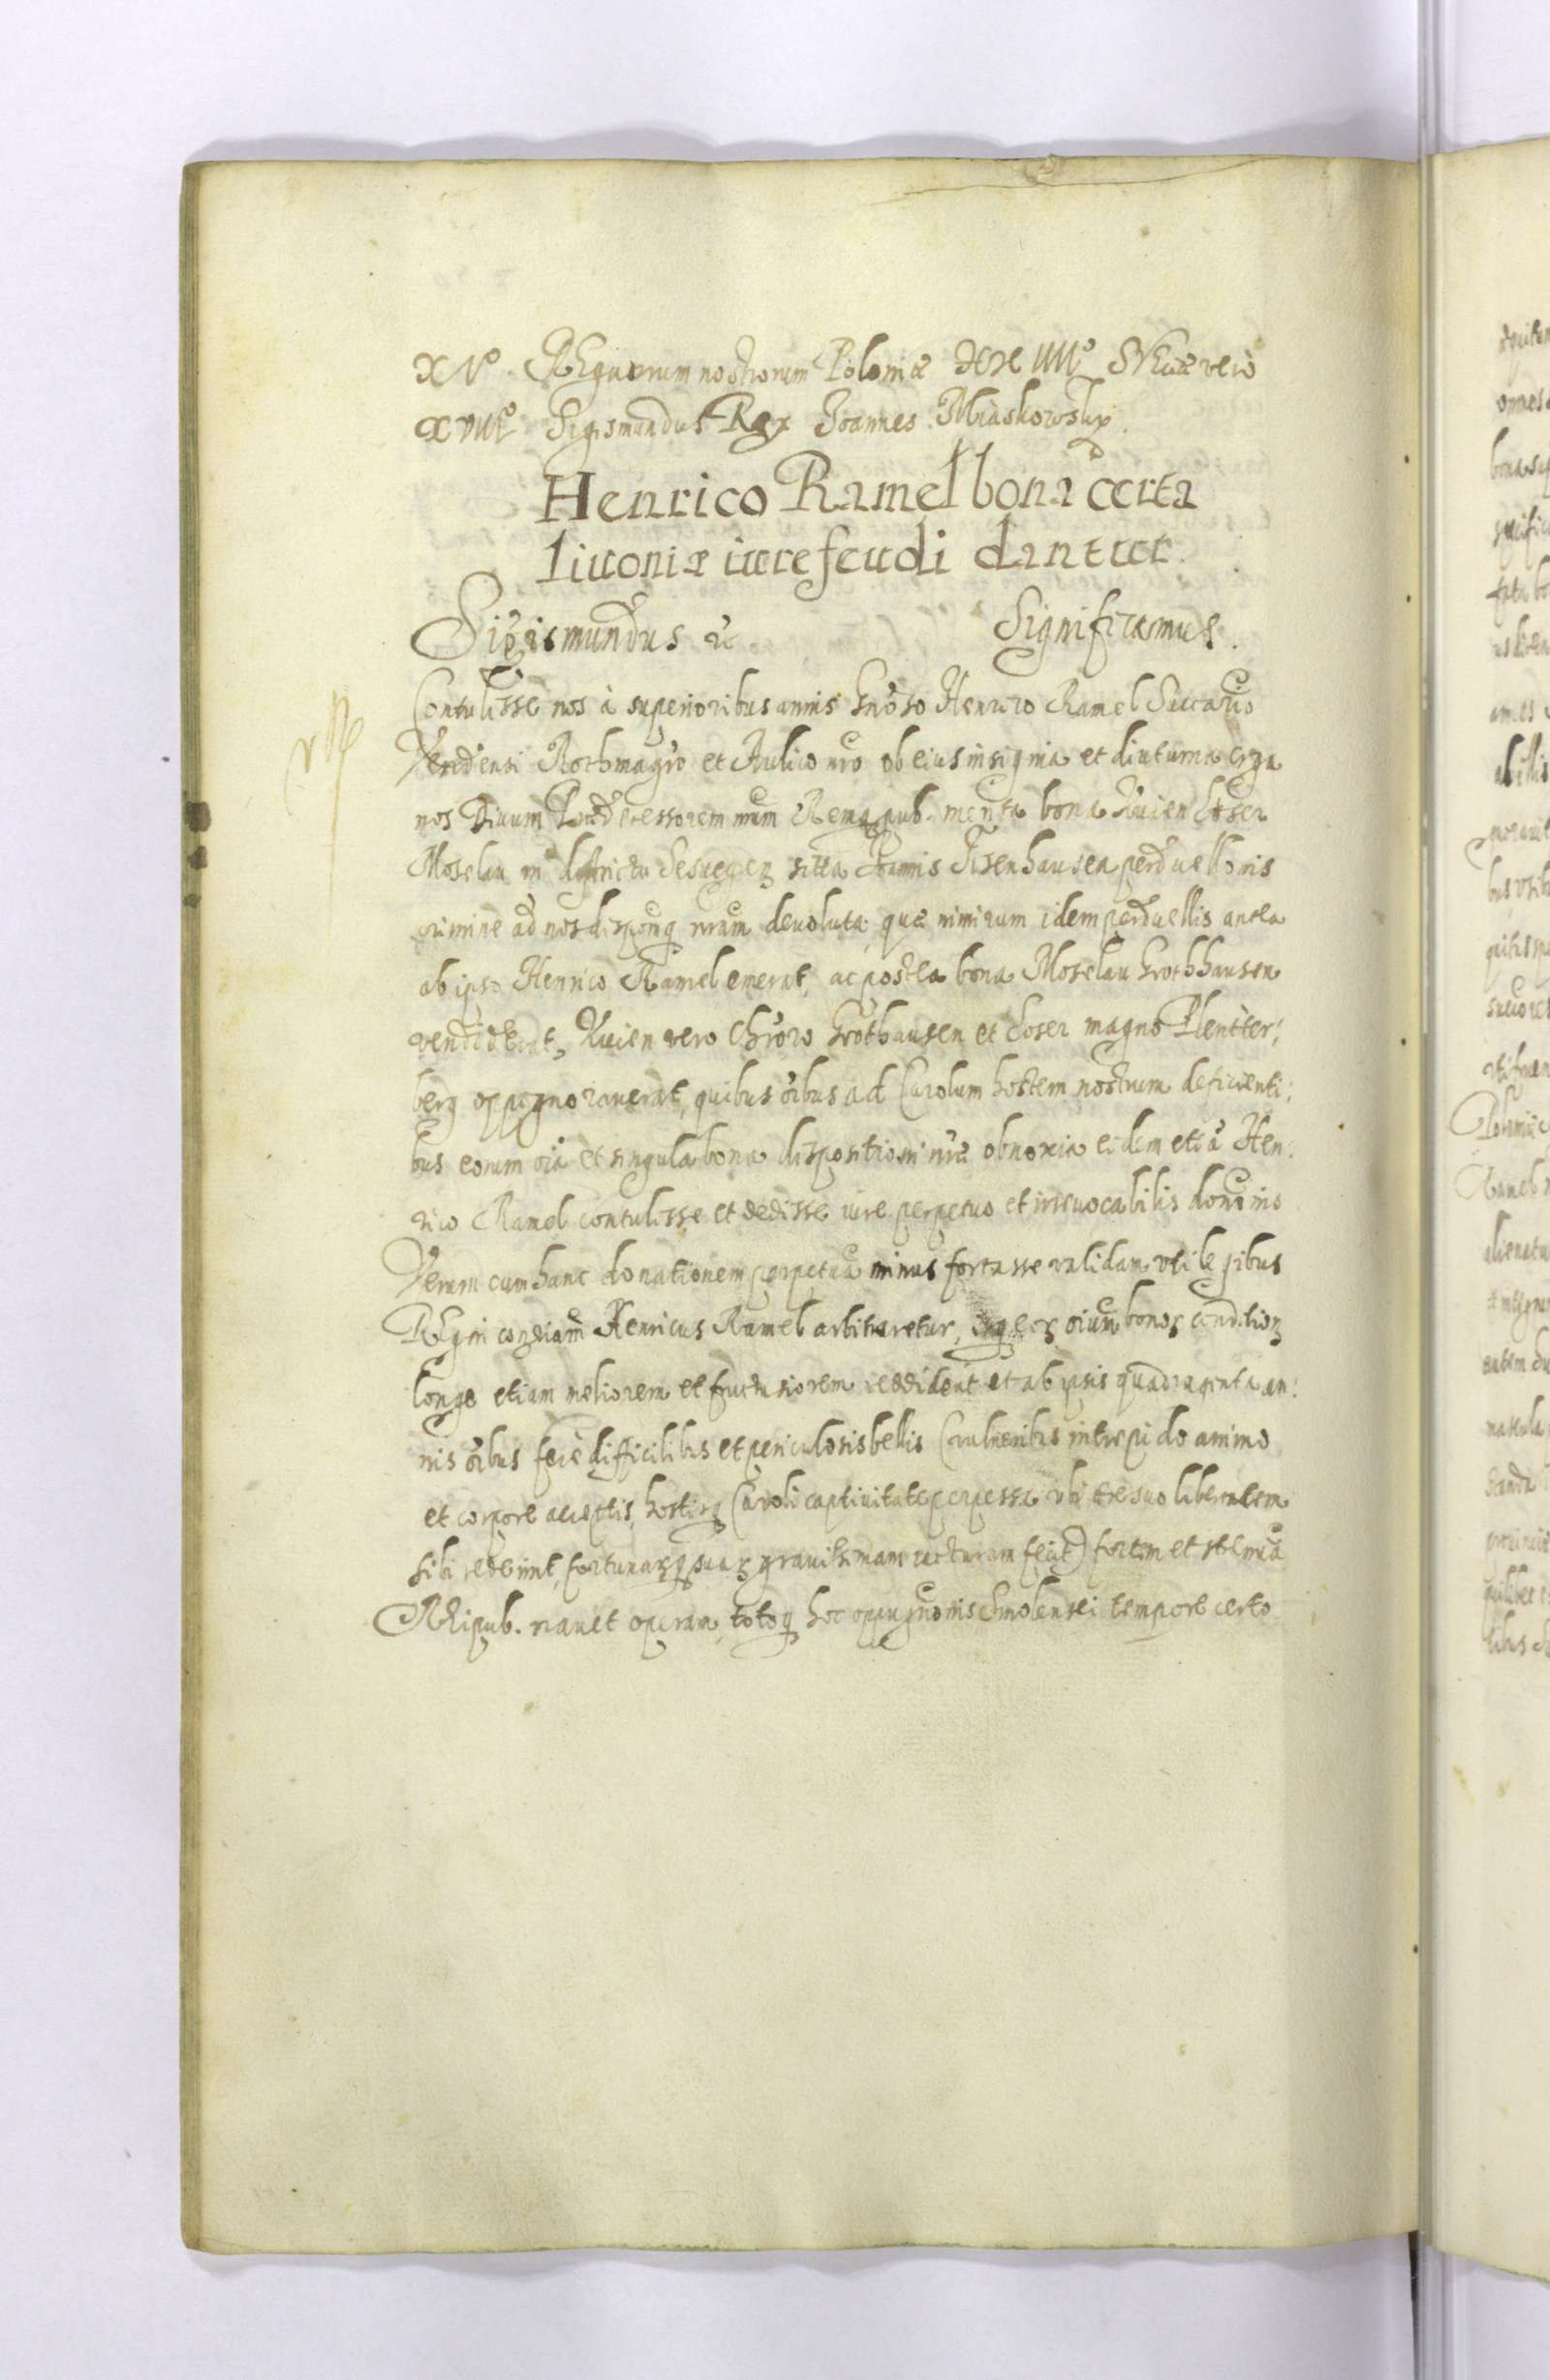 XVº. REgnorum nostrorum Poloniæ XXIIIIº SVEciæ vero
XVIIIº Sigismundus Rex Joannes Miaskowsky.
Henrico Ramel bona certa
Liuoniæ iure feudi dantur.
Sigismundus &c Significamus.
Contulisse nos à superioribus annis Gnoso Henrico Ramel Succa͠rio
Vendensi Rothmagro et Aulico nro ob eius insignia et diuturna erga
nos Diuum Prædecessorem nrum Remqpub. merita bona Ruien Loser
Moselau in districtu Sesuegen sitta Joannis Tisenhausen perduellionis
crimine ad nos dispoñq nram deuoluta, quæ nimirum idem perduellis antea
ab ipso Henrico Ramel emerat, ac postea bona Moselau Grothhausen
vendiderat, Ruien vero Chroro Grothausen et Loser magno Plentter:
berg oppignorauerat, quibus oibus ad Carolum hostem nostrum deficienti:
bus eorum oia et singula bona dispositioni nrae obnoxia eidem etiã Hen:
rico Ramel contulisse et dedisse iure perpetuo et irreuocabilis dominio
Verum cum hanc donationem perpetuã minus fortasse validam vti legibus
REgni contrariam Henricus Ramel arbitraretur, oium bonor condition
longe etiam meliorem et fructuosiorem reddiderit et ab ipsis quadraginta an:
nis oibus fere difficilibus et periculosis bellis (vulneribus intrepido animo
et corpore acceptis, hostisq Caroli captiuitate perpessa vbi ære suo libertatem
sibi redemit, fortunarq suar grauissimam iacturam fecit) fortem et strenuã
REipub. nauet operam, totoq hoc oppugnonis Smolensci tempore certo